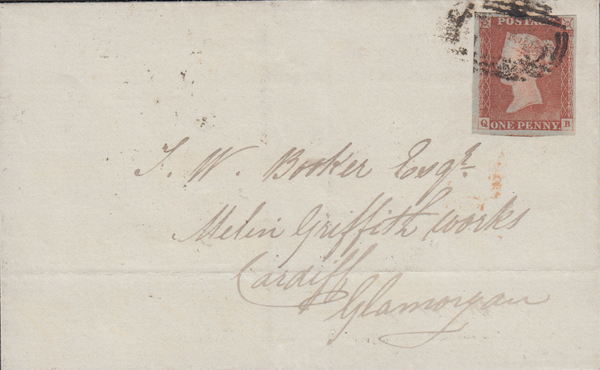 POSTAGE
Q ONE PENNY B
T. W. Booker Esqr.
Melin Griffith works
Cardiff
Glamorgan